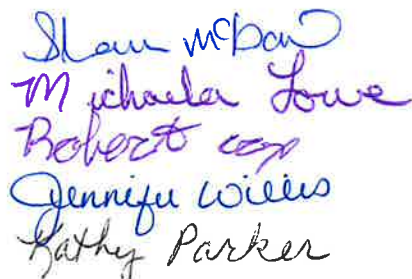 Shawn McDan
Michaela Lowe
Robert
Jennifer Willis
Kathy Parker